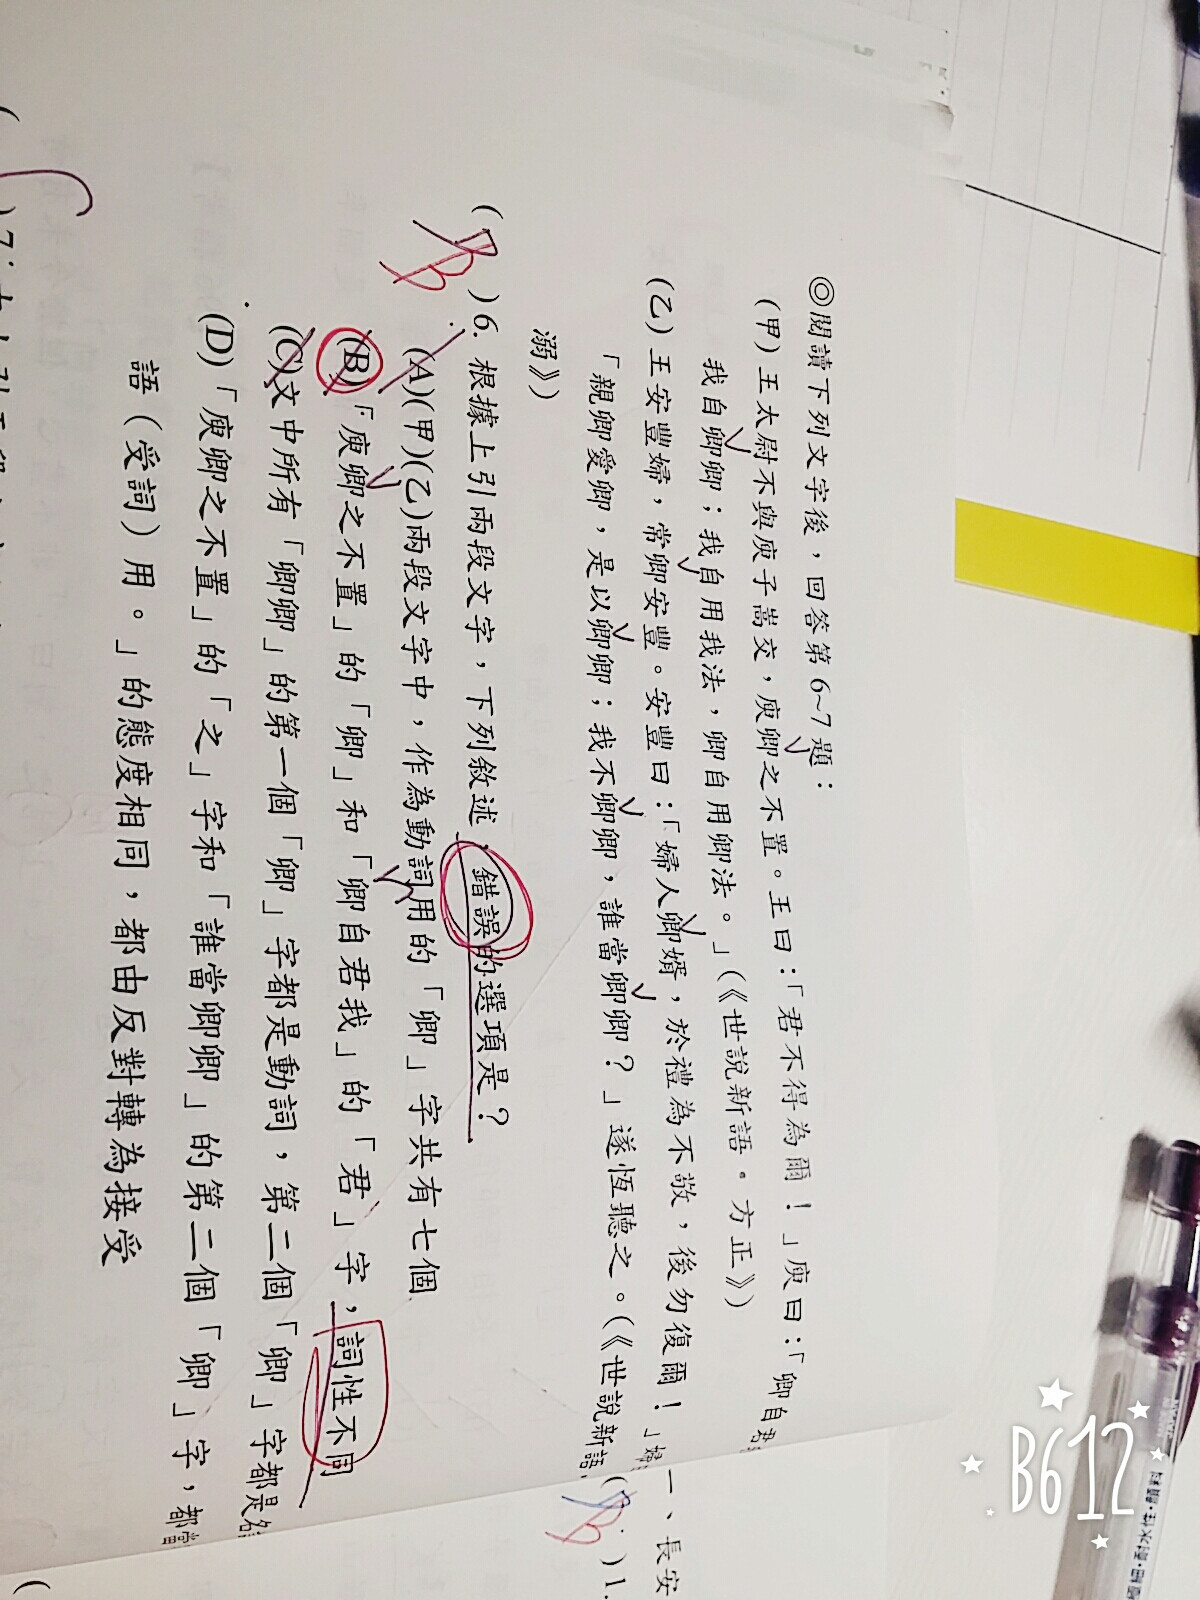 ◎閱讀下列文字後，回答第6~7題：
(甲)王太尉不與庾子嵩交，庾卿之不置。王曰：「君不得為爾！」庾曰：「卿自君
我自卿卿；我自用我法，卿自用卿法。」(《世說新語．方正》)
(乙)王安豐婦，常卿安豐。安豐曰：「婦人卿婿，於禮為不敬，後勿復爾！」婦
「親卿愛卿，是以卿卿；我不卿卿，誰當卿卿？」遂恆聽之。(《世說新語．
溺》)
( B )6. 根據上引兩段文字，下列敘述，錯誤的選項是？
(A)(甲)(乙)兩段文字中，作為動詞用的「卿」字共有七個
(B)「庾卿之不置」的「卿」和「卿自君我」的「君」字，詞性不同
(C)文中所有「卿卿」的第一個「卿」字都是動詞，第二個「卿」字都是名
(D)「庾卿之不置」的「之」字和「誰當卿卿」的第二個「卿」字，都當
語（受詞）用。」的態度相同，都由反對轉為接受
( )7.
一、長安
( B )1.
B612